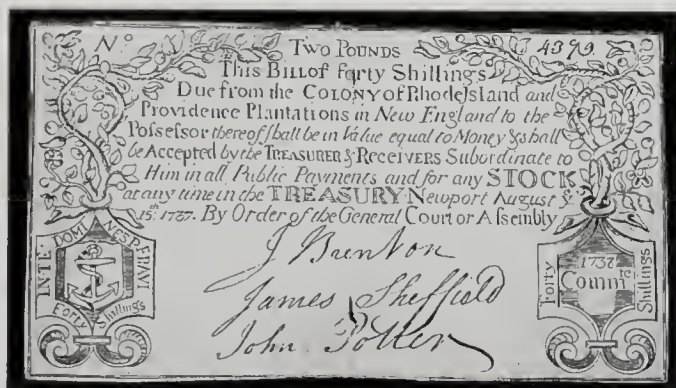 Nº 4379.
TWO POUNDS
This BILL of forty Shillings
Due from the COLONY of Rhode Island and
Providence Plantations in New England to the
Possessor thereof shall be in Value equal to Money & shall
be Accepted by the TREASURER & RECEIVERS Subordinate to
Him in all Public Payments and for any STOCK
at any time in the TREASURY Newport August ye
15th. 1737. By Order of the General Court or Assembly
J Brenton
James Sheffield
John Potter
INTE DOMI NESPERAVI
Forty Shillings
Forty 1738 Shillings
Commtee